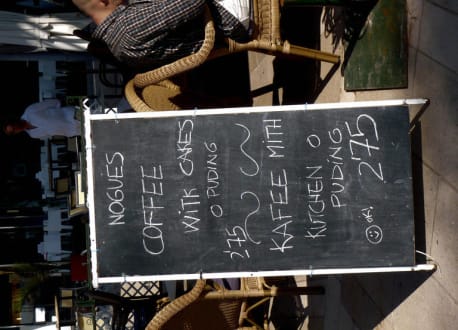 NOGUES
COFFEE
WITH CAKES
O PUDING
2'75
KAFEE MITH
KUTCHEN O
PUDING
2'75
OK!